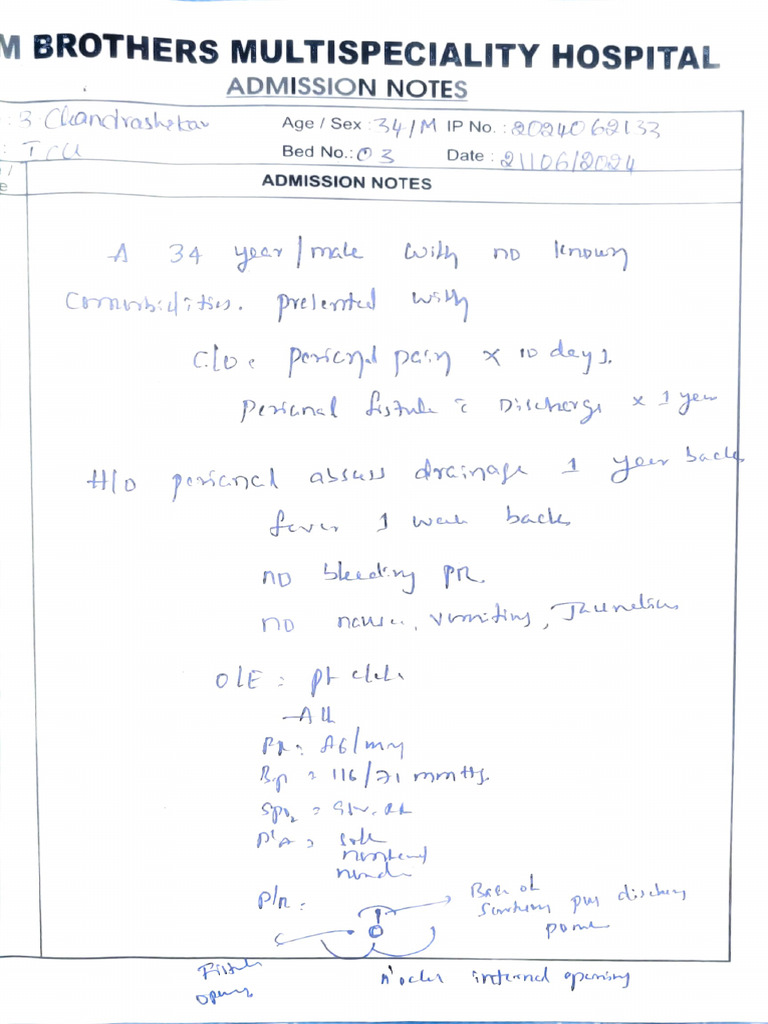 M BROTHERS MULTISPECIALITY HOSPITAL
ADMISSION NOTES
: B Chandrashekar Age / Sex : 34/M IP No. : 2024062133
: ICU Bed No.: 03 Date : 21/06/2024
ADMISSION NOTES
A 34 year/male with no known
Comorbidities. presented with
C/O: perianal pain x 10 days.
perianal fistula c Discharge x 1 year
H/O perianal abscess drainage 1 year back
fever 1 week back
no bleeding PR
no nausea, vomiting,
O/E: pt c/c/c
PR:
Bp = 116/71 mmHg.
SpO2 =
P/A = soft
nontender
P/R:
pus discharge
Fistula
opening
internal opening